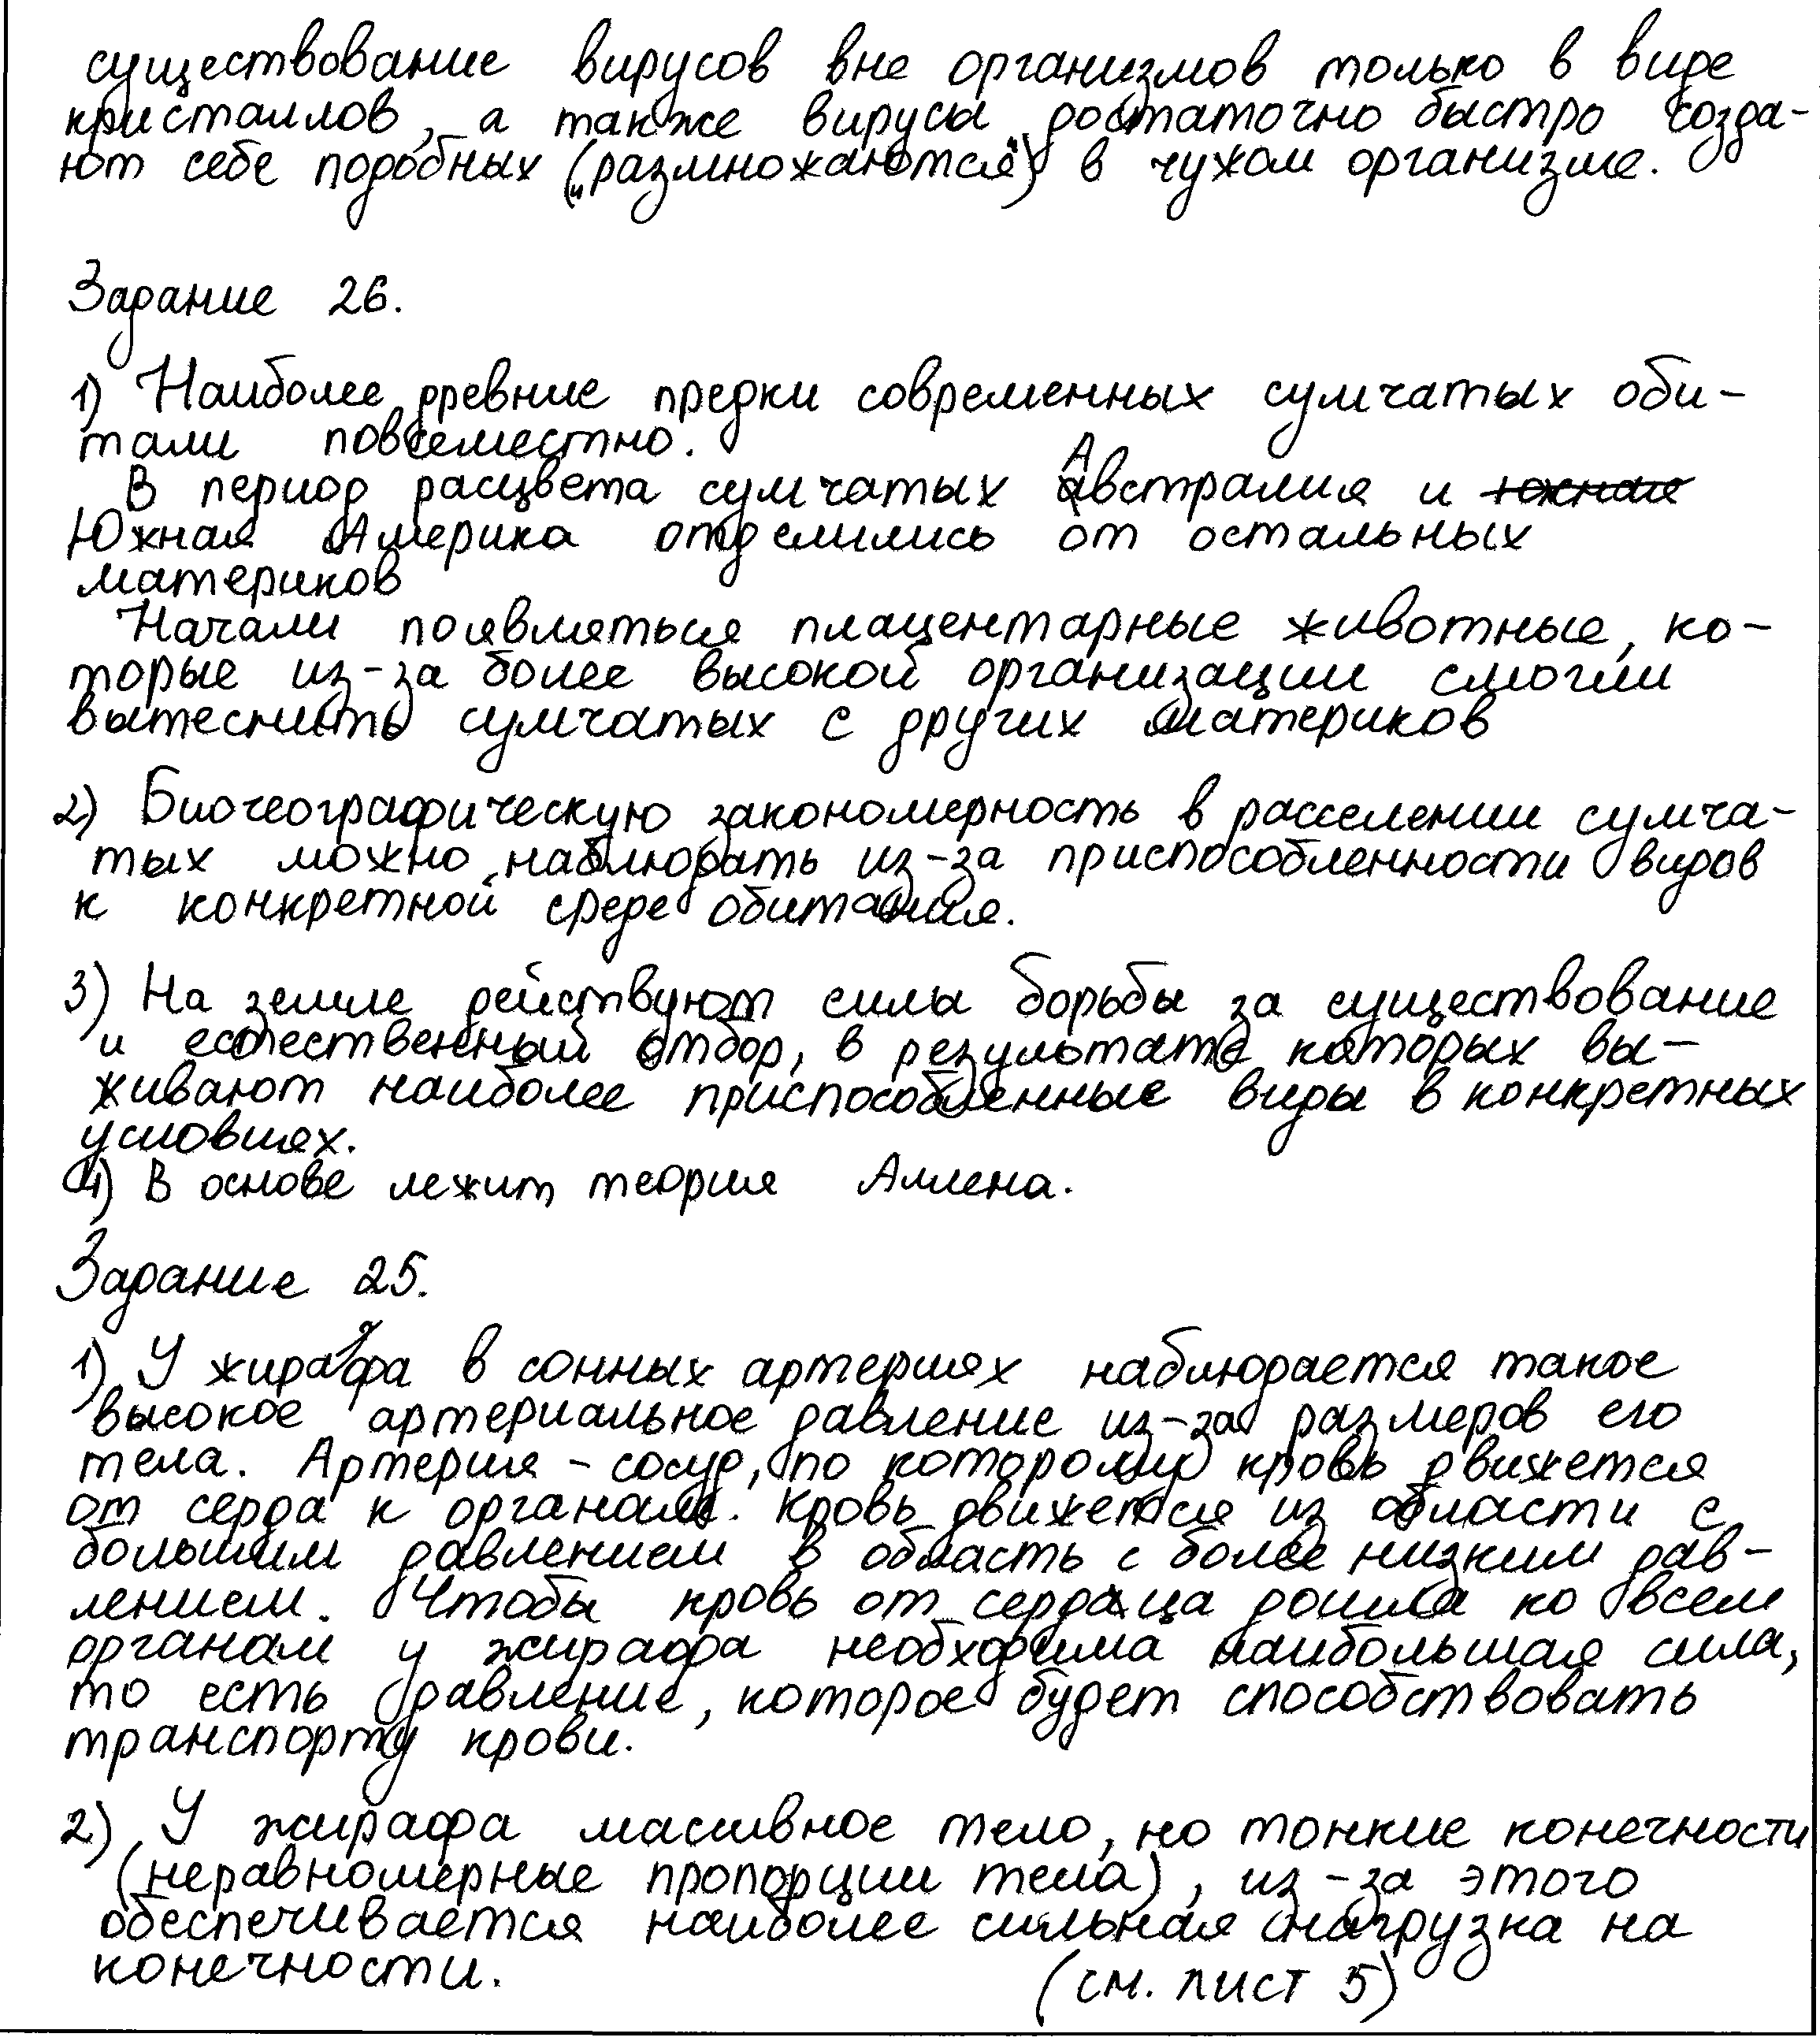 существование вирусов вне организмов только в виде
кристаллов, а также вирусы достаточно быстро созда-
ют себе подобных („размножаются") в чужом организме.
Задание 26.
1) Наиболее древние предки современных сумчатых оби-
тали повсеместно.
В период расцвета сумчатых Австралия и южная
Южная Америка отделились от остальных
материков
Начали появляться плацентарные животные, ко-
торые из-за более высокой организации смогли
вытеснить сумчатых с других материков
2) Биогеографическую закономерность в расселении сумча-
тых можно наблюдать из-за приспособленности видов
к конкретной среде обитания.
3) На земле действуют силы борьбы за существование
и естественный отбор, в результате которых вы-
живают наиболее приспособленные виды в конкретных
условиях.
4) В основе лежит теория Аллена.
Задание 25.
1) У жирафа в сонных артериях наблюдается такое
высокое артериальное давление из-за размеров его
тела. Артерия - сосуд, по которому кровь движется
от серда к органам. Кровь движется из области с
большим давлением в область с более низким дав-
лением. Чтобы кровь от сердца дошла ко всем
органам у жирафа необходима наибольшая сила,
то есть давление, которое будет способствовать
транспорту крови.
2) У жирафа массивное тело, но тонкие конечности
(неравномерные пропорции тела), из-за этого
обеспечивается наиболее сильная нагрузка на
конечности.
(см. лист 5)